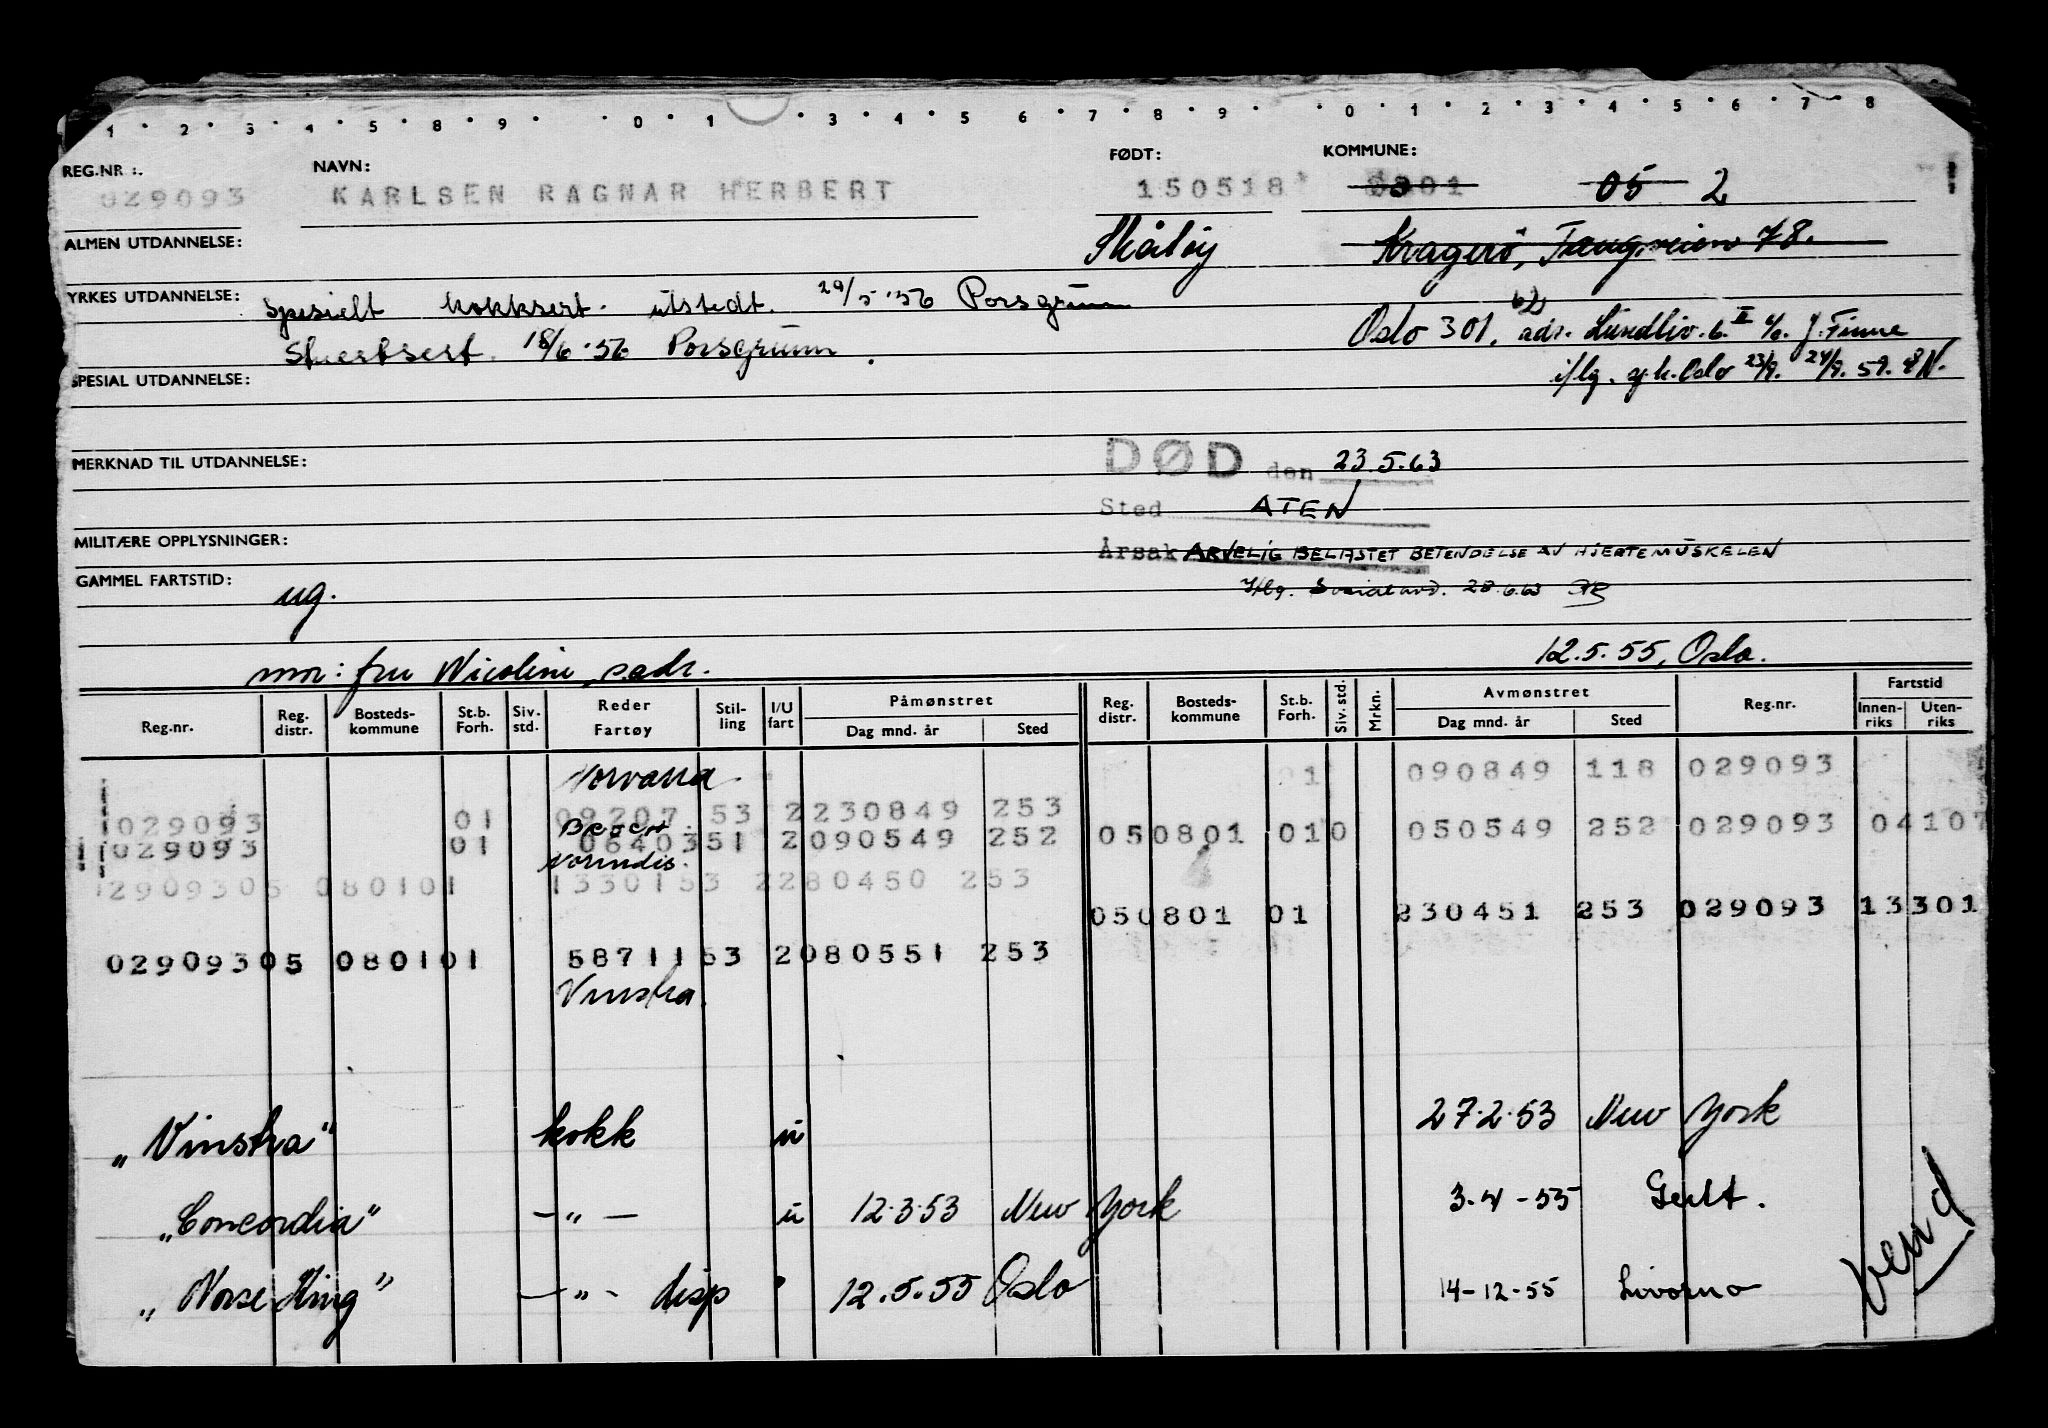 1 · 2 · 3 · 4 · 5 · 8 · 9 · · 0 · 1 · 3 · 4 · 5 6 · 7 · 8 · 9 · · 0 · 1 · 2 · 3 · 4 · 5 · 6 · 7 · 8
REG.NR :. NAVN: FØDT: KOMMUNE:
029093 KARLSEN RAGNAR HERBERT 150518 0801 05 2
ALMEN UTDANNELSE: Skåtøy Kragerø, 78.
YRKES UTDANNELSE: spesielt kokksert. utstedt. 29/5 '56 Porsgrunn
Oslo 301, adr. Lundliv. 6. II c/o J. Finne
Stuertsert. 18/6 '56 Porsgrunn.
SPESIAL UTDANNELSE: iflg. sj.k. Oslo 23/9. 24/9. 59.
MERKNAD TIL UTDANNELSE: DØD den 23.5.63
Sted ATEN
MILITÆRE OPPLYSNINGER: Årsak ARVELIG BELASTET BETENDELSE AV HJERTEMUSKELEN
GAMMEL FARTSTID: ug. Iflg. Sosialavd. 28.6.63
mor: fru Nicoline, s.adr. 12.5.55, Oslo.
Reg.nr. Reg. distr. Bosteds-kommune St.b. Forh. Siv. std. Reder Fartøy Stil-ling I/U fart Påmønstret Dag mnd. år Sted Reg. distr. Bosteds-kommune St.b. Forh. Siv. std. Mrkn. Avmønstret Dag mnd. år Sted Reg.nr. Fartstid Innen-riks Uten-riks
Norvana 01 090849 118 029093
029093 01 09207 53 2 230849 253
Beger
029093 01 06403 51 2 090549 252 050801 010 050549 252 029093 04107
Norindis.
029093 05 0801 01 13301 53 2 280450 253
050801 01 230451 253 029093 13301
029093 05 0801 01 58711 53 2 080551 253
Vinstra.
„Vinstra" kokk u 27.2.53 New York
„Concordia" — „ — u 12.3.53 New York 3.4-55 Gult.
„Norse King" — „ - disp " 12.5.55 Oslo 14-12-55 Livorno
Vend